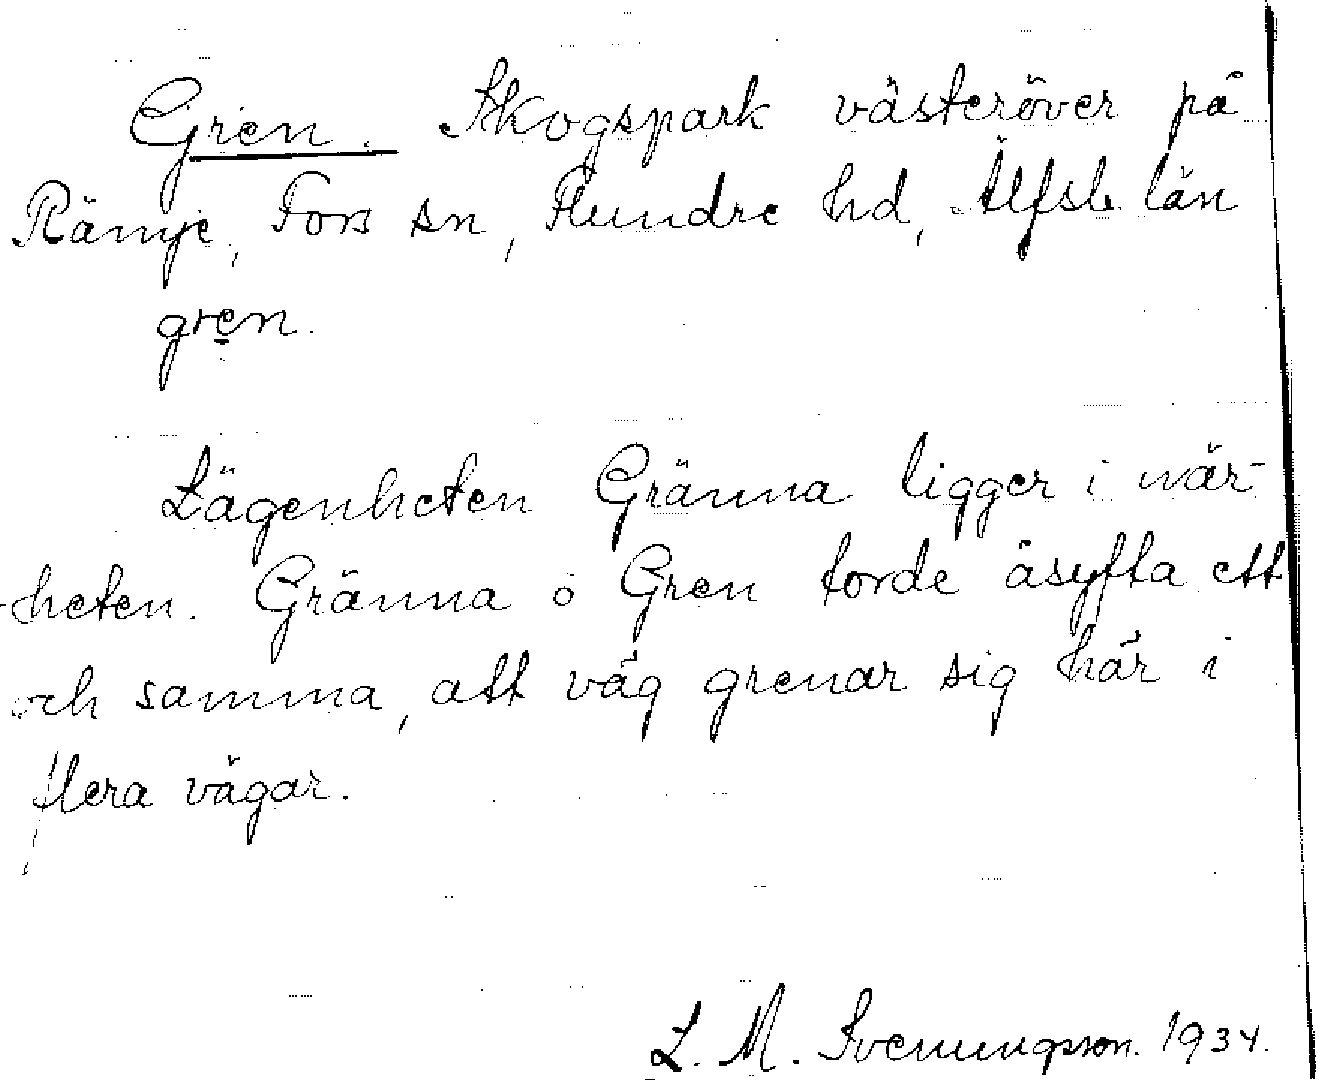 Gren. Skogspark västeröver på
Rämje, Fors sn, Flundre hd, Älfsb. län
gren.
Lägenheten Gränna ligger i när-
heten. Gränna o Gren torde åsyfta ett
och samma, att väg grenar sig här i
flera vägar.
L. M. Svenungsson. 1934.